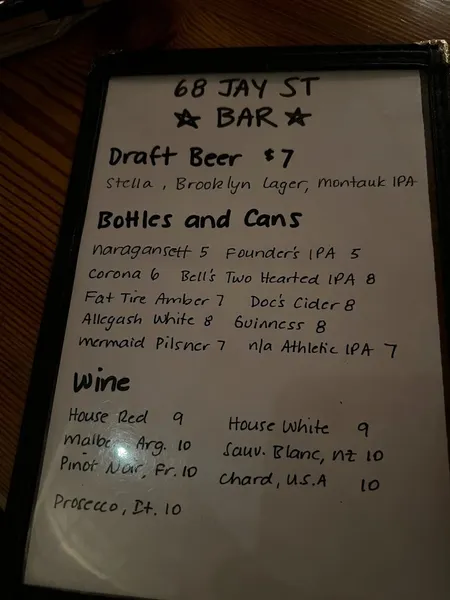 68 JAY ST
☆ BAR ☆
Draft Beer $7
Stella, Brooklyn Lager, Montauk IPA
Bottles and Cans
Naragansett 5 Founder's IPA 5
Corona 6 Bell's Two Hearted IPA 8
Fat Tire Amber 7 Doc's Cider 8
Allegash White 8 Guinness 8
Mermaid Pilsner 7 n/a Athletic IPA 7
Wine
House Red 9 House White 9
Malbec Arg. 10 Sauv. Blanc, NZ 10
Pinot Noir, Fr. 10 Chard, U.S.A 10
Prosecco, It. 10